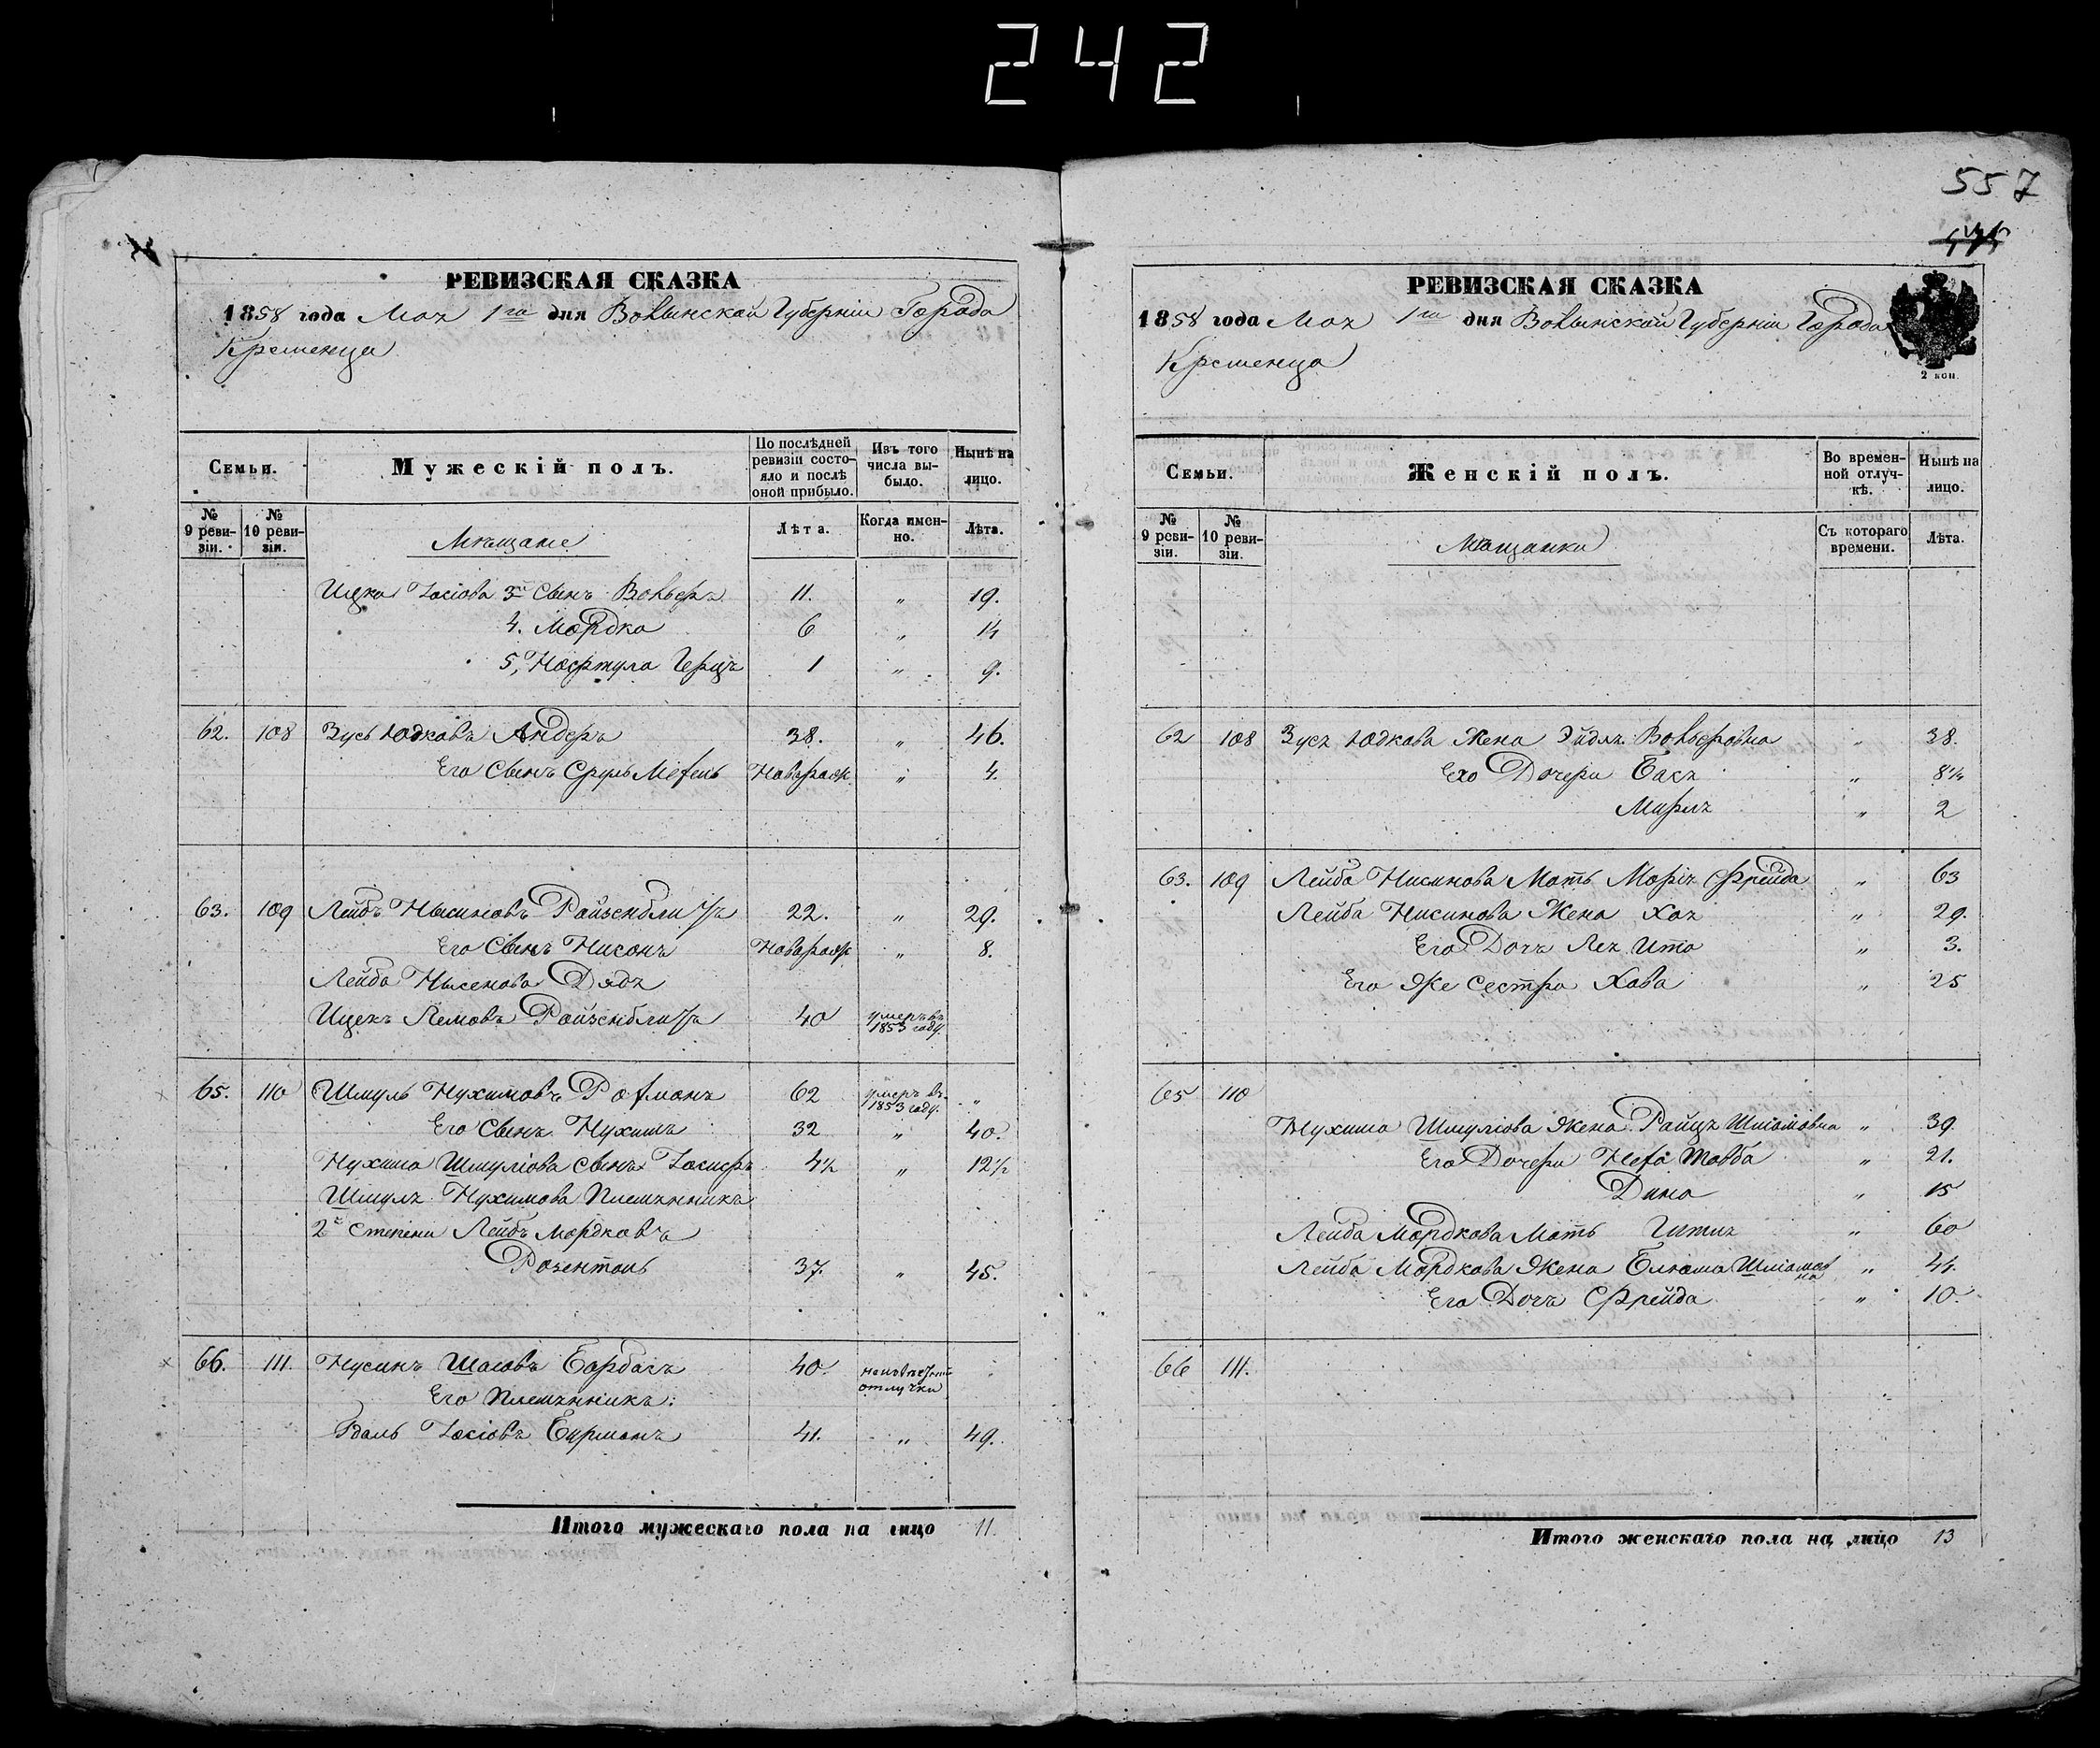 242
557
РЕВИЗСКАЯ СКАЗКА
1858 года Мая 1го дня Волынской Губерніи Города
Кременца
Семьи.
Мужескій полъ.
По послѣдней ревизіи состояло и послѣ оной прибыло.
Изъ того числа выбыло.
Нынѣ на лицо.
№ 9 ревизіи.
№ 10 ревизіи.
Мѣщане
Лѣта.
Когда именно.
Лѣта.
Ицка Іосіова 3й Сынъ Вольферъ 11. „ 19.
4. Мордко 6 „ 14
5, Нафтула Герцъ 1 „ 9.
62. 108 Зусь Юдковъ Андеръ 38. „ 46.
Его Сынъ Сруль Мехель Новорож „ 4.
63. 109 Лейбъ Нысиновъ Ройзенблитъ 22. „ 29.
Его Сынъ Нисонъ Новорож „ 8.
Лейба Нысенова Дядя
Ицекъ Лемовъ Ройзенблитъ 40 умеръ въ 1853 году.
65. 110 Шмуль Нухимовъ Рохманъ 62 умеръ въ 1853 году. „
Его Сынъ Нухимъ 32 „ 40.
Нухима Шмуліова сынъ Іосифъ 4½ „ 12½
Шмуля Нухимова Племянникъ
2й Степени Лейбъ Мордковъ
Розенталь 37. „ 45.
66. 111. Нусинъ Шаевъ Барбагъ 40. отлучки
Его Племянникъ:
Гдаль Іосіовъ Бирманъ 41. „ 49.
Итого мужескаго пола на лицо 11.
РЕВИЗСКАЯ СКАЗКА
1858 года Мая 1го дня Волынской Губерніи Города
Кременца
2 коп.
Семьи.
Женскій полъ.
Во временной отлучкѣ.
Нынѣ на лицо.
№ 9 ревизіи.
№ 10 ревизіи.
Мѣщанки
Съ котораго времени.
Лѣта.
62 108 Зуся Юдкова Жена Эйдля Вольфовна „ 38.
Его Дочери Бася „ 8½
Мирля „ 2
63. 109 Лейба Нисинова Мать Марія Фрейда „ 63
Лейба Нисинова Жена Хая „ 29.
Его Дочь Лея Ита „ 3.
Его Же Сестра Хава „ 25
65 110
Нухима Шмуліова Жена Райця Шліомовна „ 39.
Его Дочери Неха Товба „ 21.
Дина „ 15
Лейба Мордкова Мать Гитля „ 60
Лейба Мордкова Жена Блюма Шліомовна „ 41.
Его Дочь Фрейда „ 10.
66 111.
Итого женскаго пола на лицо 13